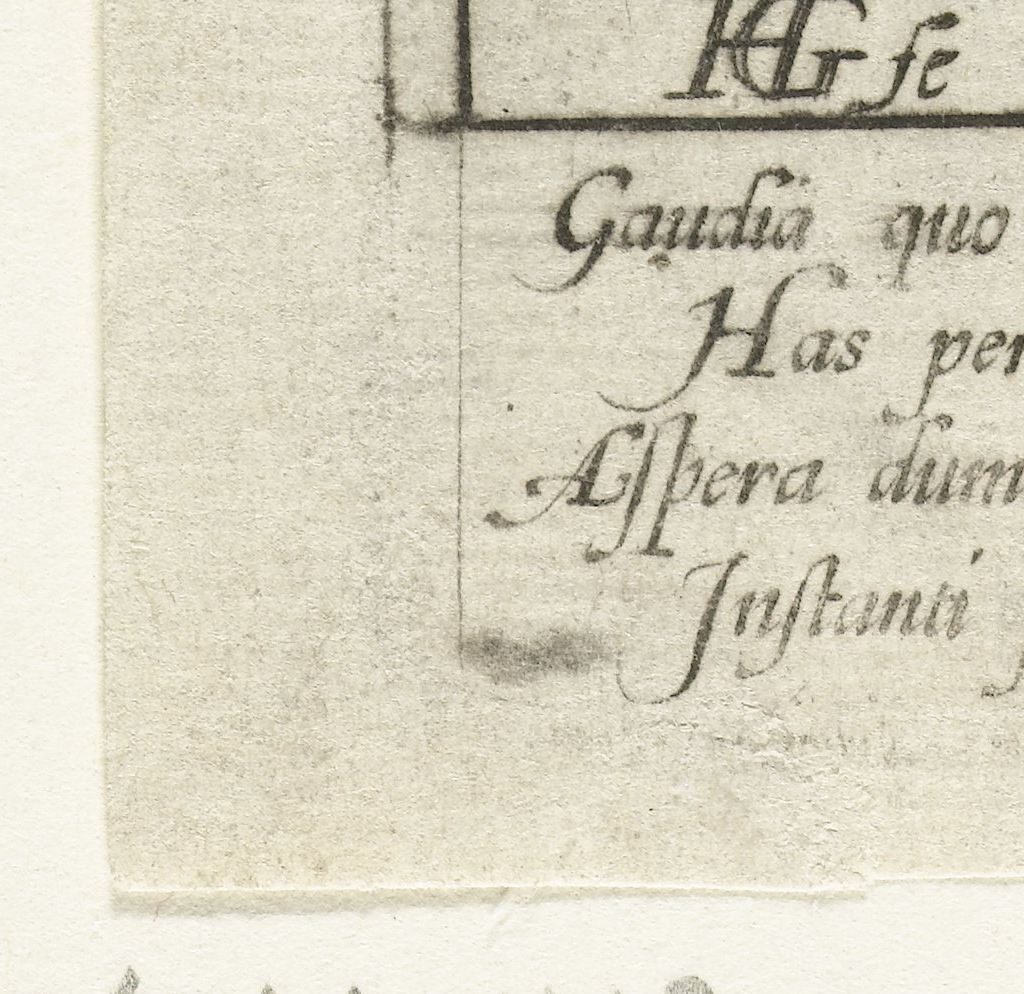 HG fe
Gaudia quo
Has per
Aſpera dum
Inſtanti